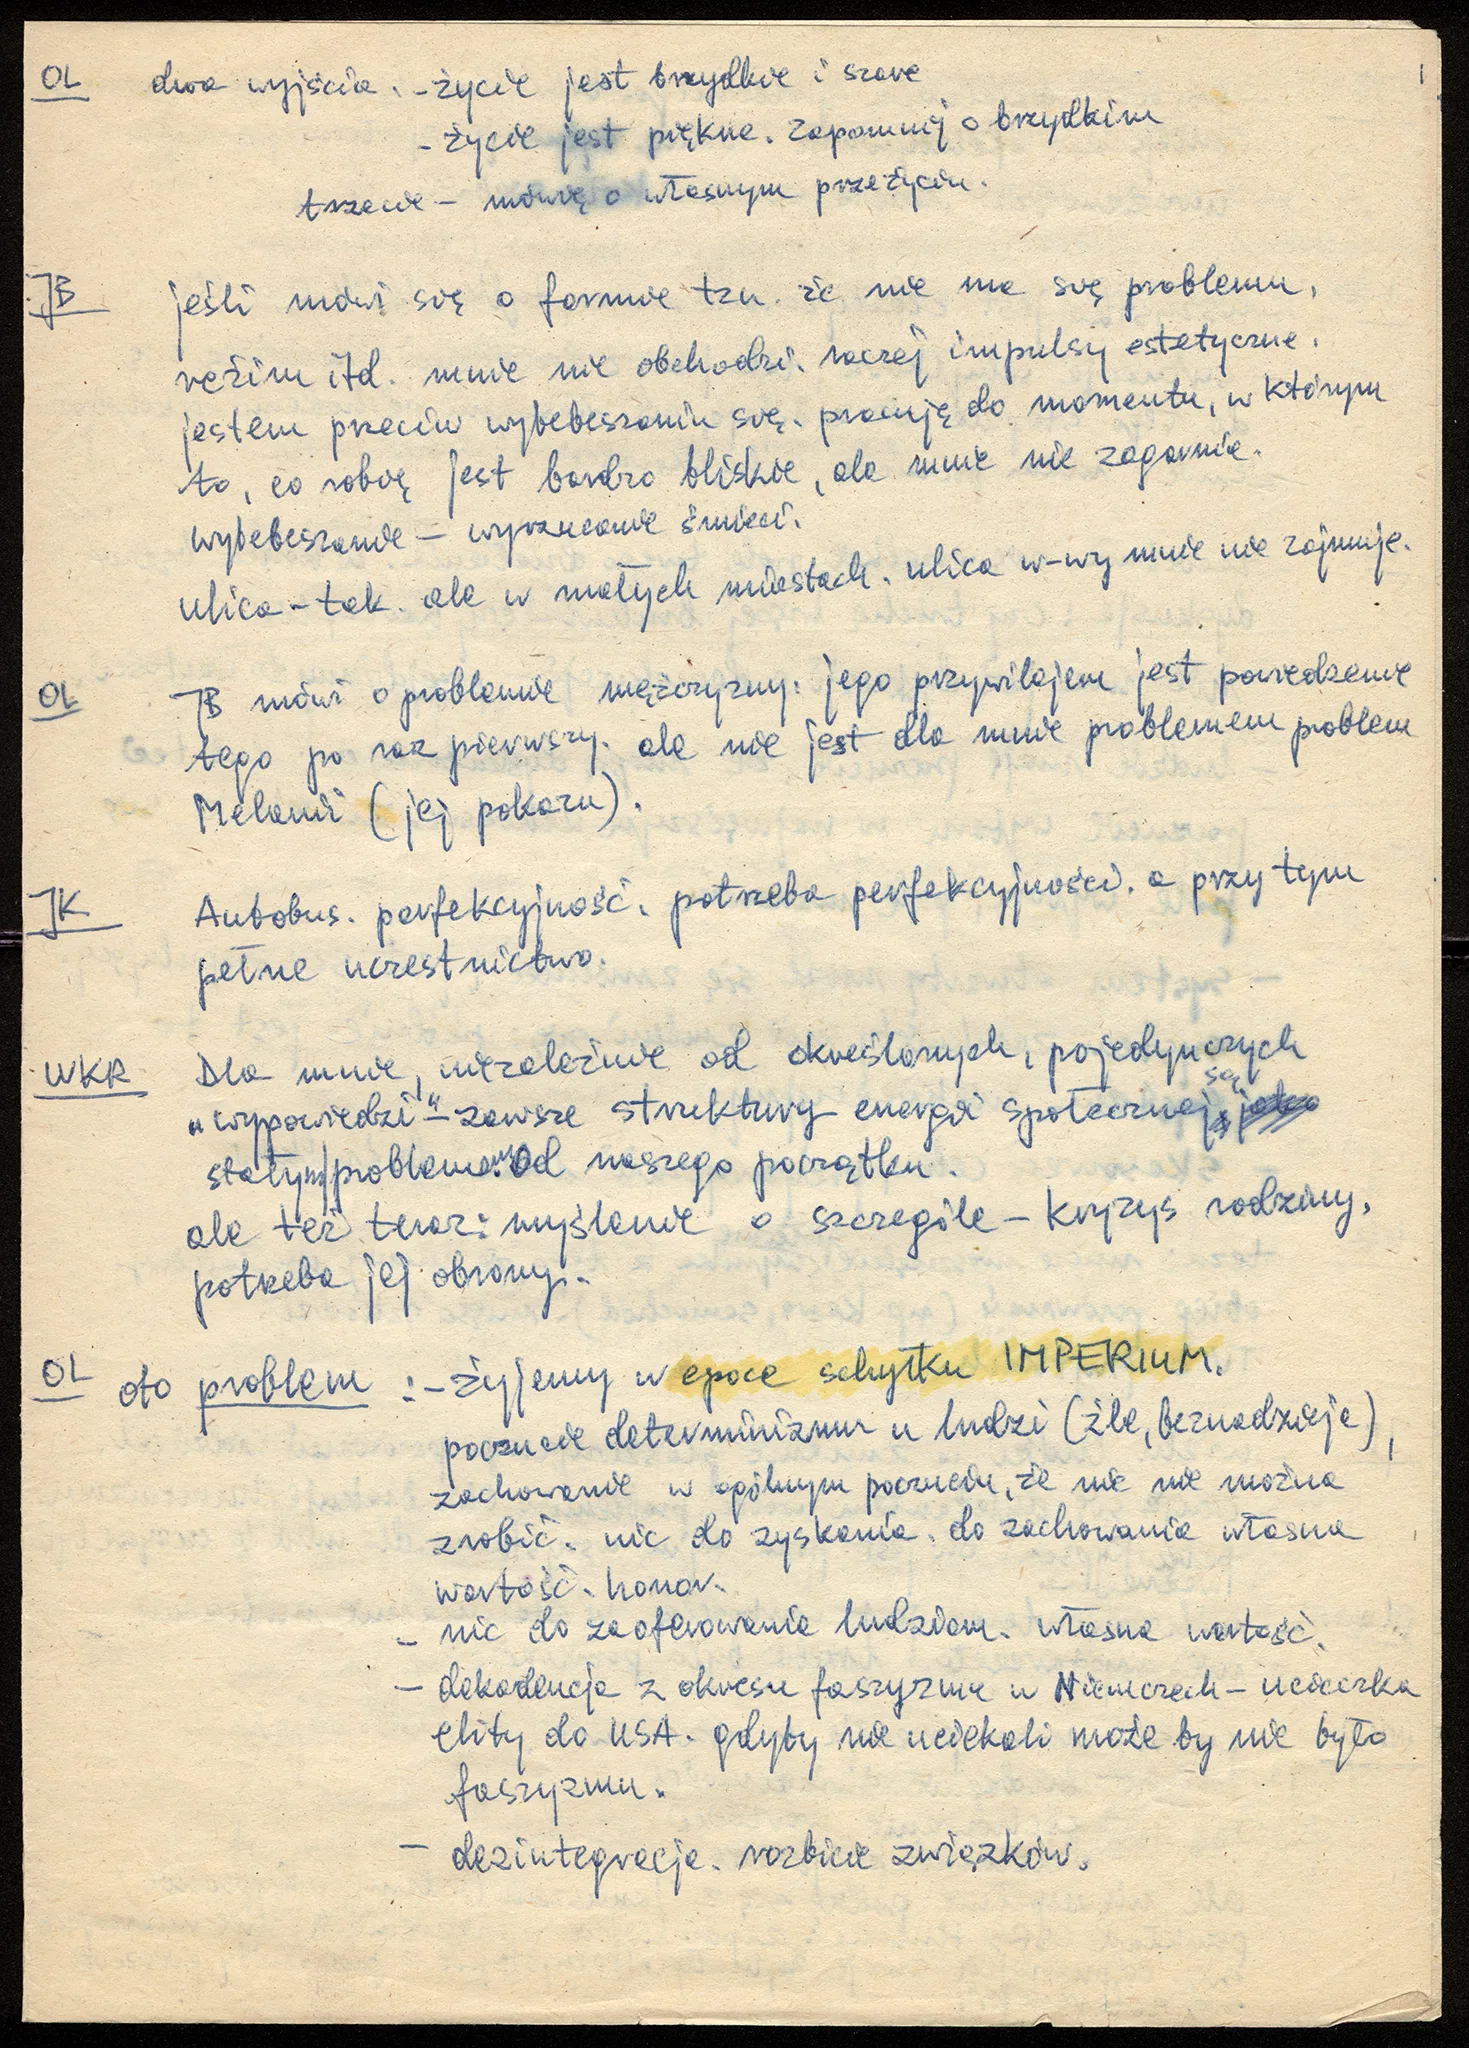 OL dwa wyjścia. - życie jest brzydkie i szare
- życie jest piękne. zapomnij o brzydkim
trzecie - mówię o własnym przeżyciu.
JB jeśli mówi się o formie tzn. że nie ma się problemu.
reżim itd. mnie nie obchodzi. raczej impulsy estetyczne.
jestem przeciw wybebeszaniu się. pracuję do momentu, w którym
to, co robię jest bardzo bliskie, ale mnie nie zagarnia.
wybebeszanie - wyrzucanie śmieci.
ulica - tak. ale w małych miastach. ulica w-wy mnie nie zajmuje.
OL JB mówi o problemie mężczyzny: jego przywilejem jest powiedzenie
tego po raz pierwszy. ale nie jest dla mnie problemem problem
Melanii (jej pokazu).
JK Autobus. perfekcyjność. potrzeba perfekcyjności. a przy tym
pełne uczestnictwo.
WKR Dla mnie, niezależnie od określonych, pojedynczych
„wypowiedzi" - zawsze struktury energii społecznej są
stałym problemem od naszego początku.
ale też teraz: myślenie o szczególe - kryzys rodziny,
potrzeba jej obrony.
OL oto problem : - żyjemy w epoce schyłku IMPERIUM.
poczucie determinizmu u ludzi (źle, beznadzieja),
zachowanie w ogólnym poczuciu, że nic nie można
zrobić. nic do zyskania. do zachowania własna
wartość. honor.
- nic do zaoferowania ludziom. własna wartość.
- dekadencja z okresu faszyzmu w Niemczech - ucieczka
elity do USA. gdyby nie uciekali może by nie było
faszyzmu.
- dezintegracja. rozbicie związków.